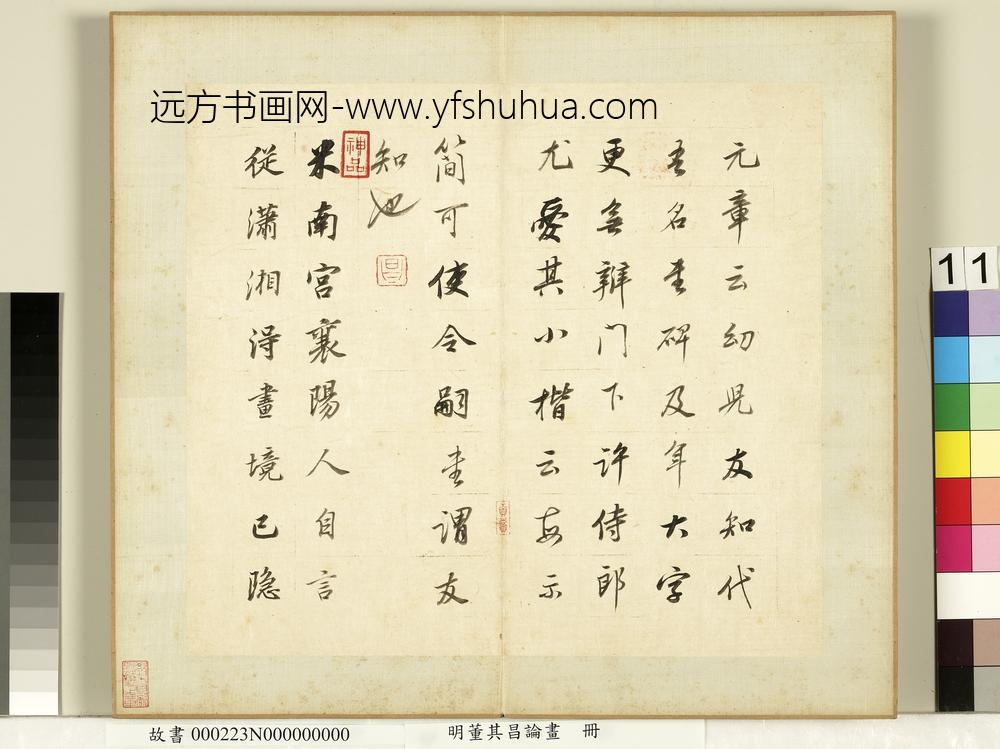 远方书画网-www.yfshuhua.com
元章云幼児友知代
吾名书碑及年大字
更無辨门下许侍郎
尤愛其小楷云每示
简可使令嗣书謂友
知也
神品
米南宫襄陽人自言
從瀟湘得畫境已隐
11
故書 000223N000000000
明董其昌論畫 冊